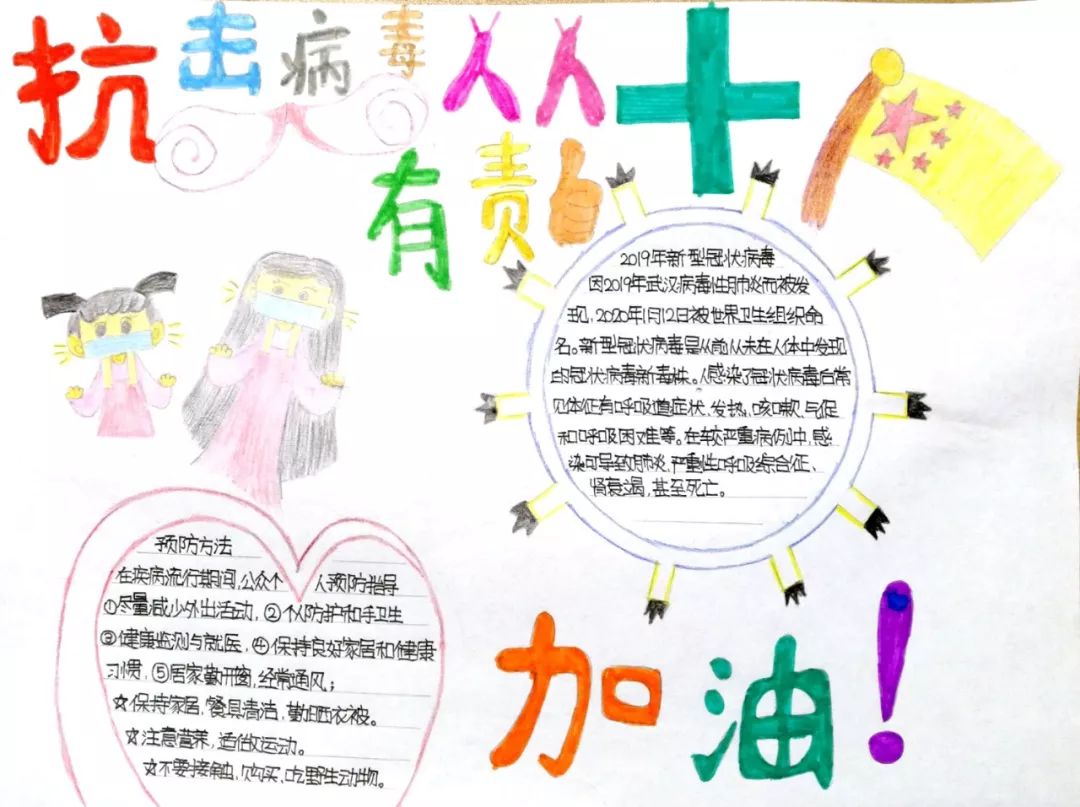 抗击病毒人人
有责
2019年新型冠状病毒
因2019年武汉病毒性肺炎而被发
现,2020年1月12日被世界卫生组织命
名。新型冠状病毒是从前从未在人体中发现
的冠状病毒新毒株。人感染了冠状病毒后常
见体征有呼吸道症状、发热、咳嗽、气促
和呼吸困难等。在较严重病例中,感
染可导致肺炎、严重性呼吸综合征、
肾衰竭,甚至死亡。
预防方法
在疾病流行期间,公众个人预防指导
①尽量减少外出活动,②个人防护和手卫生
③健康监测与就医,④保持良好家居和健康
习惯,⑤居家勤开窗,经常通风;
☆保持家居,餐具清洁,勤晒衣被。
☆注意营养,适做运动。
☆不要接触、购买、吃野生动物。
加油!